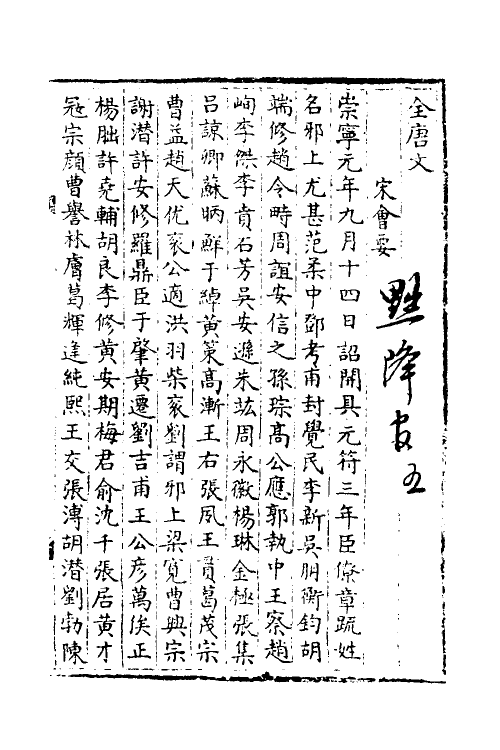 全唐文
宋會要
黜降官五
崇寧元年九月十四日詔開具元符三年臣僚章疏姓
名邪上尤甚范柔中鄧考甫封覺民李新吳朋衡鈞胡
端修趙令畤周誼安信之孫琮高公應郭執中王察趙
峋李傑李賁石芳吳安遜朱紘周永徽楊琳金極張集
呂諒卿蘇昞鮮于綽黃策高漸王右張夙王貢葛茂宗
曹益趙天佐袞公適洪羽柴袞劉謂邪上梁寬曹興宗
謝潛許安修羅鼎臣于肇黃遷劉吉甫王公彥萬俟正
楊朏許堯輔胡良李修黃安期梅君俞沈千張居黃才
冦宗顏曹譽林膚葛輝逢純熙王交張溥胡潛劉勃陳